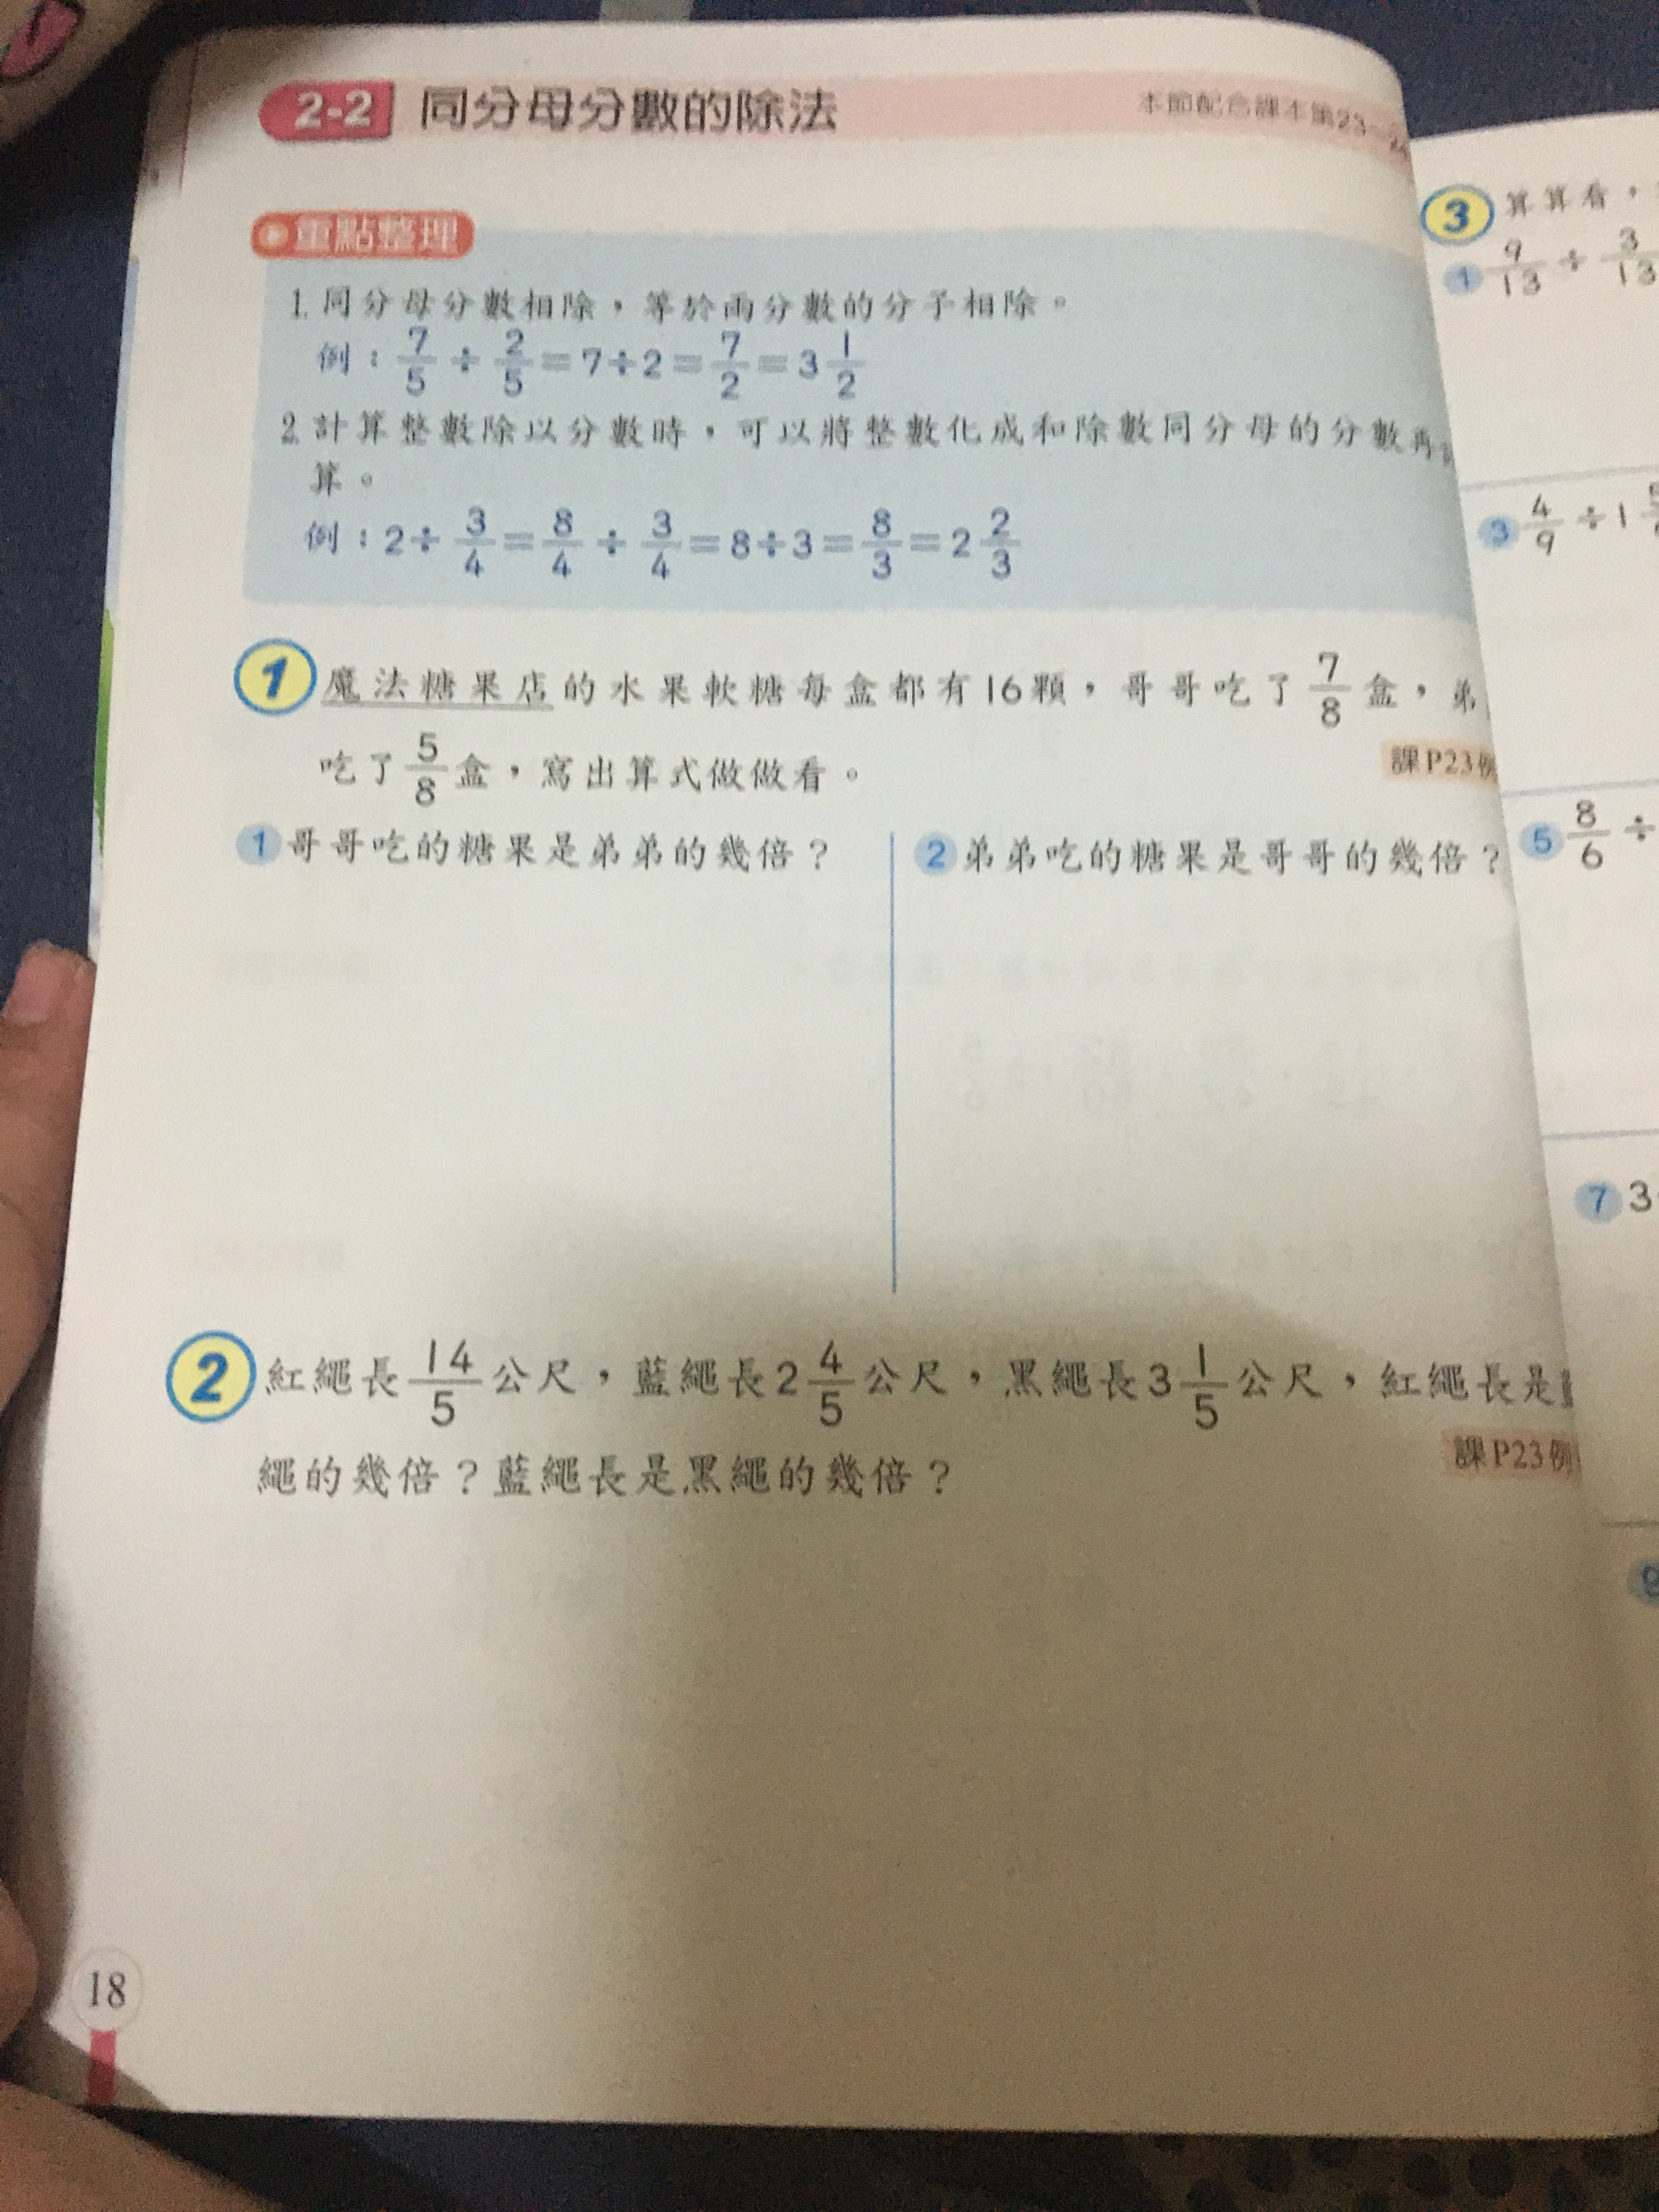 2-2 同分母分數的除法
本節配合課本第23
重點整理
1. 同分母分數相除，等於兩分數的分子相除。
例：7/5 ÷ 2/5 = 7÷2 = 7/2 = 3 1/2
2. 計算整數除以分數時，可以將整數化成和除數同分母的分數再
算。
例：2÷ 3/4 = 8/4 ÷ 3/4 = 8÷3 = 8/3 = 2 2/3
1 魔法糖果店的水果軟糖每盒都有16顆，哥哥吃了 7/8 盒，弟
吃了 5/8 盒，寫出算式做做看。
課P23例
1 哥哥吃的糖果是弟弟的幾倍？
2 弟弟吃的糖果是哥哥的幾倍？
2 紅繩長 14/5 公尺，藍繩長 2 4/5 公尺，黑繩長 3 1/5 公尺，紅繩長是
繩的幾倍？藍繩長是黑繩的幾倍？
課P23例
18
3 算算看，
1 9/13 ÷ 3/13
3 4/9 ÷ 1
5 8/6 ÷
7 3